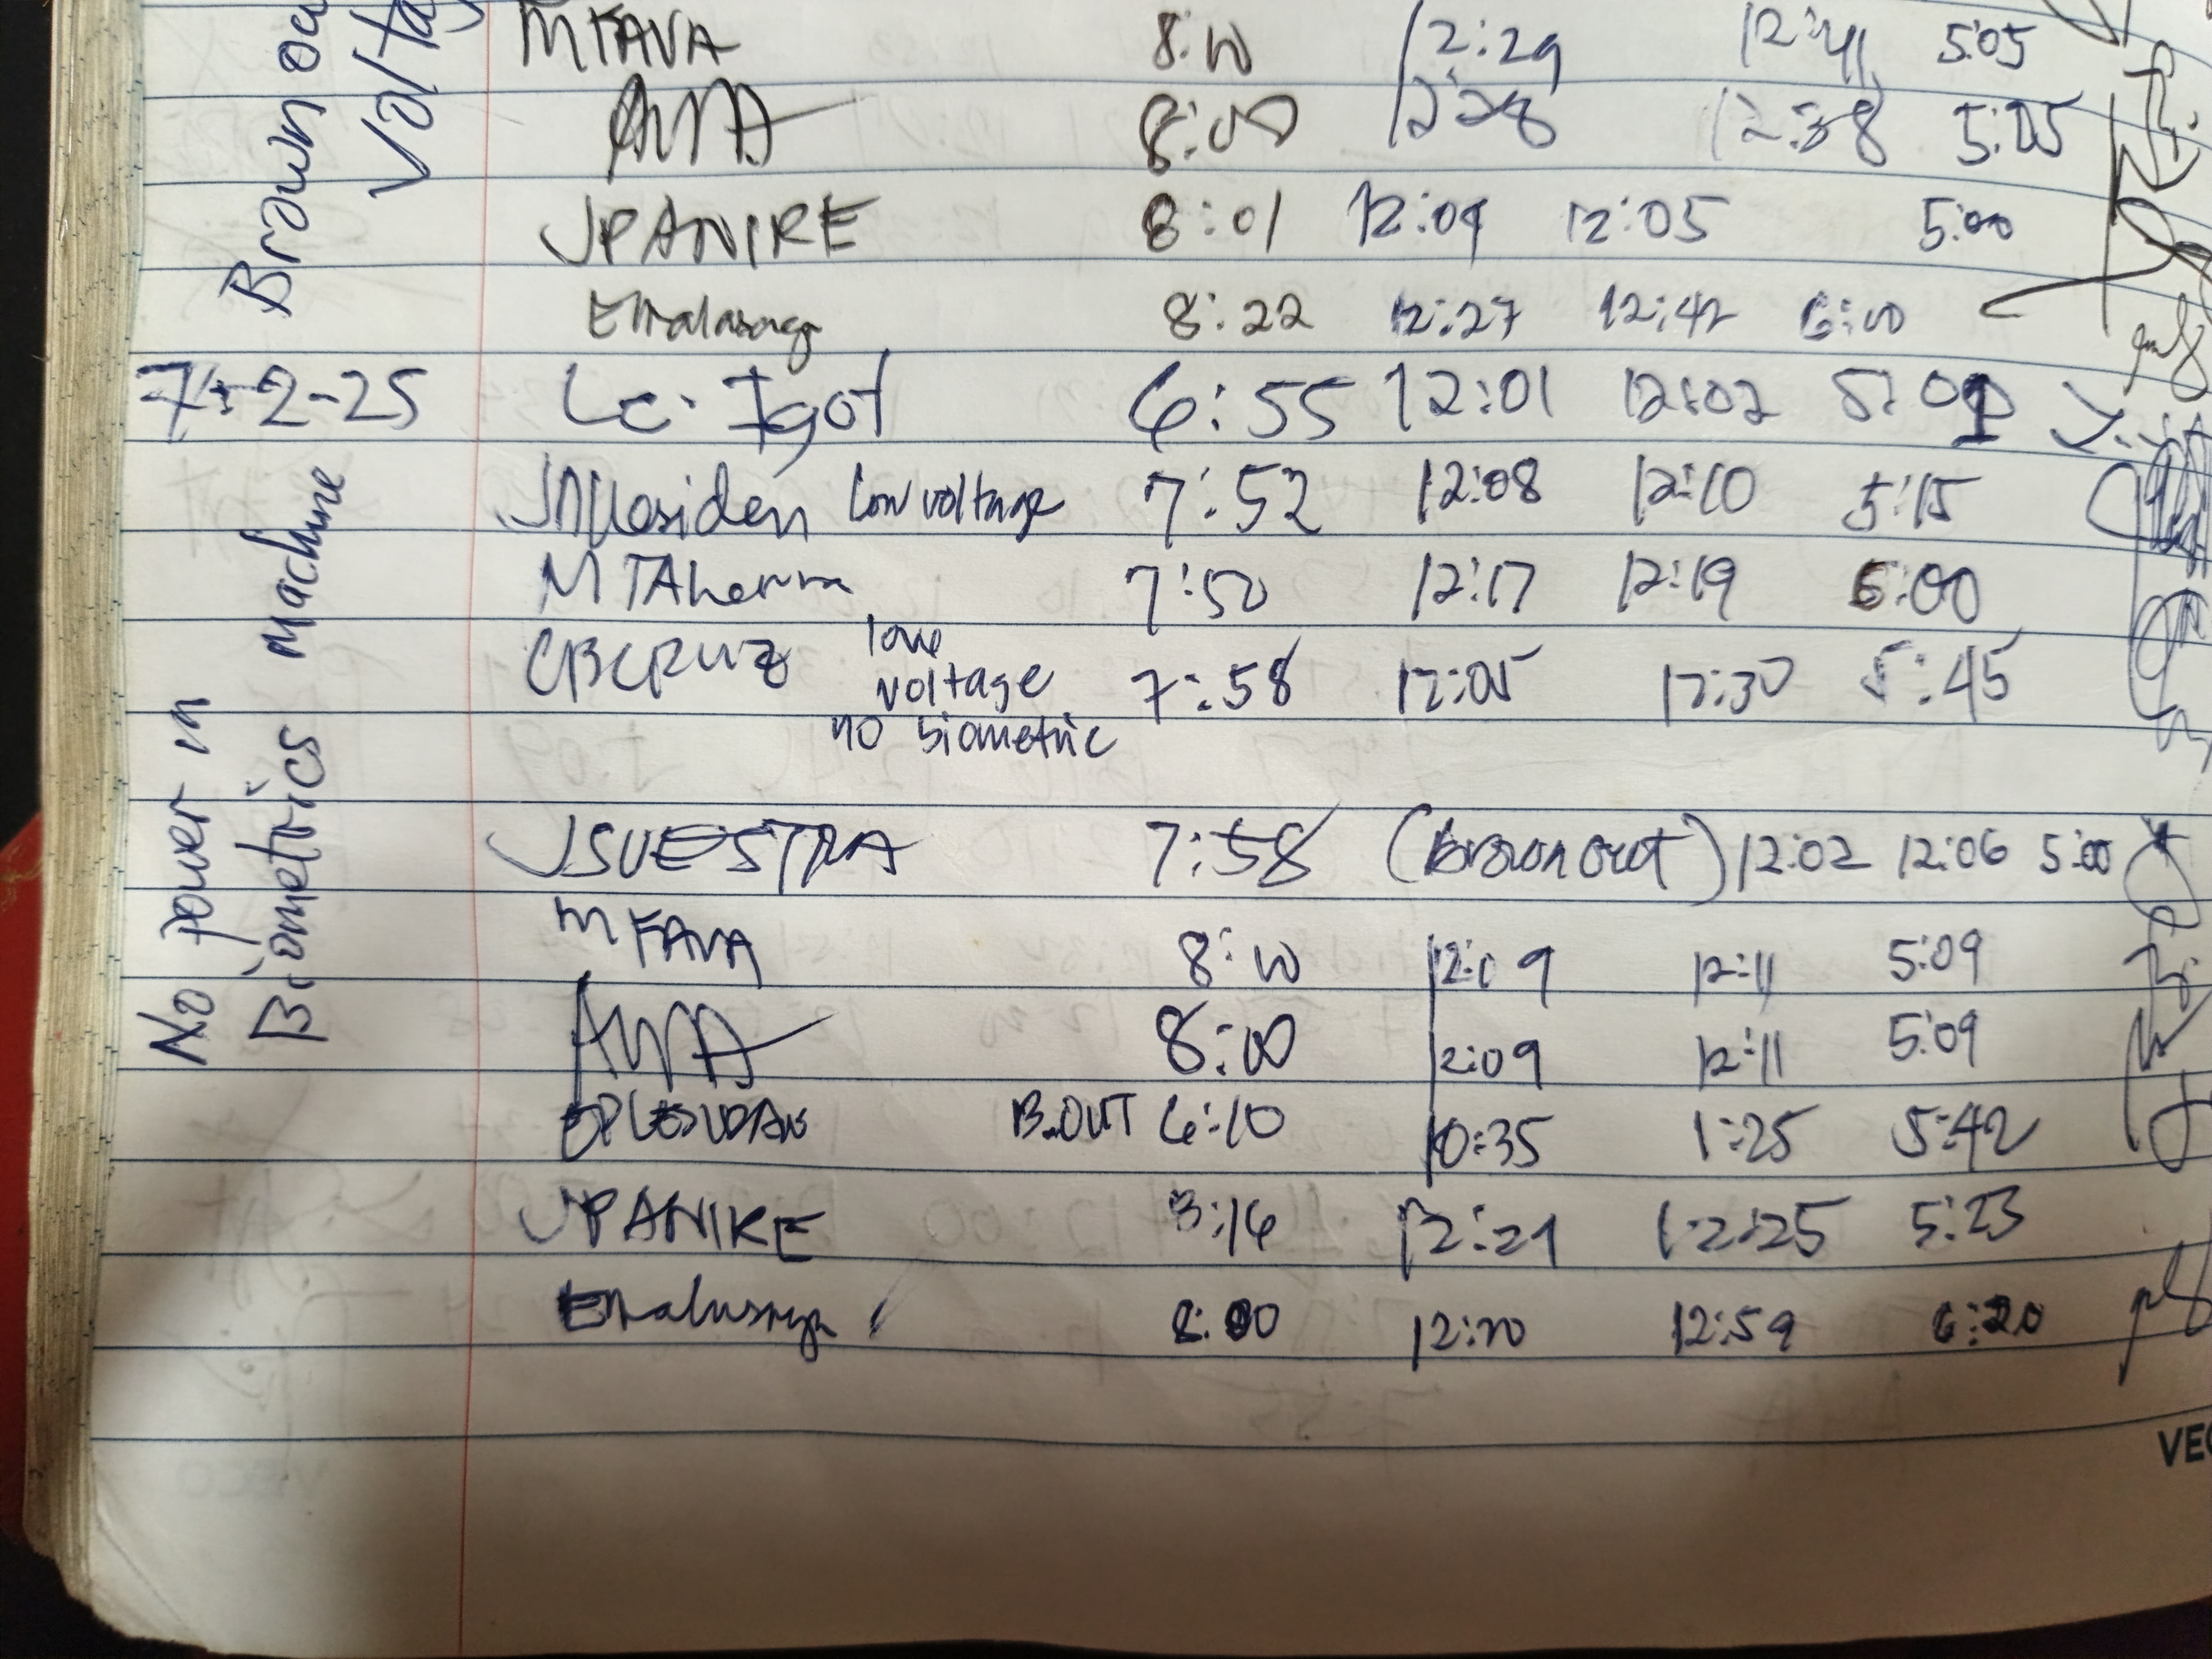 Brown
MFAVA 8:10 12:29 12:41 5:05
8:00 12:28 12:38 5:05
JPANIRE 8:01 12:04 12:05 5:00
8:22 12:27 12:42 6:00
7-2-25 Lc. Igot 6:55 12:01 12:02 5:01
low voltage 7:52 12:08 12:10 5:15
7:50 12:17 12:19 6:00
CBCRUZ low voltage no biometric 7:58 12:05 12:30 5:45
No power in
Biometrics machine
JSUESTRA 7:58 (Brown out) 12:02 12:06 5:00
MFAVA 8:10 12:09 12:11 5:09
8:00 12:09 12:11 5:09
B.OUT 6:10 10:35 1:25 5:42
JPANIRE 8:16 12:21 12:25 5:23
8:00 12:20 12:59 6:20